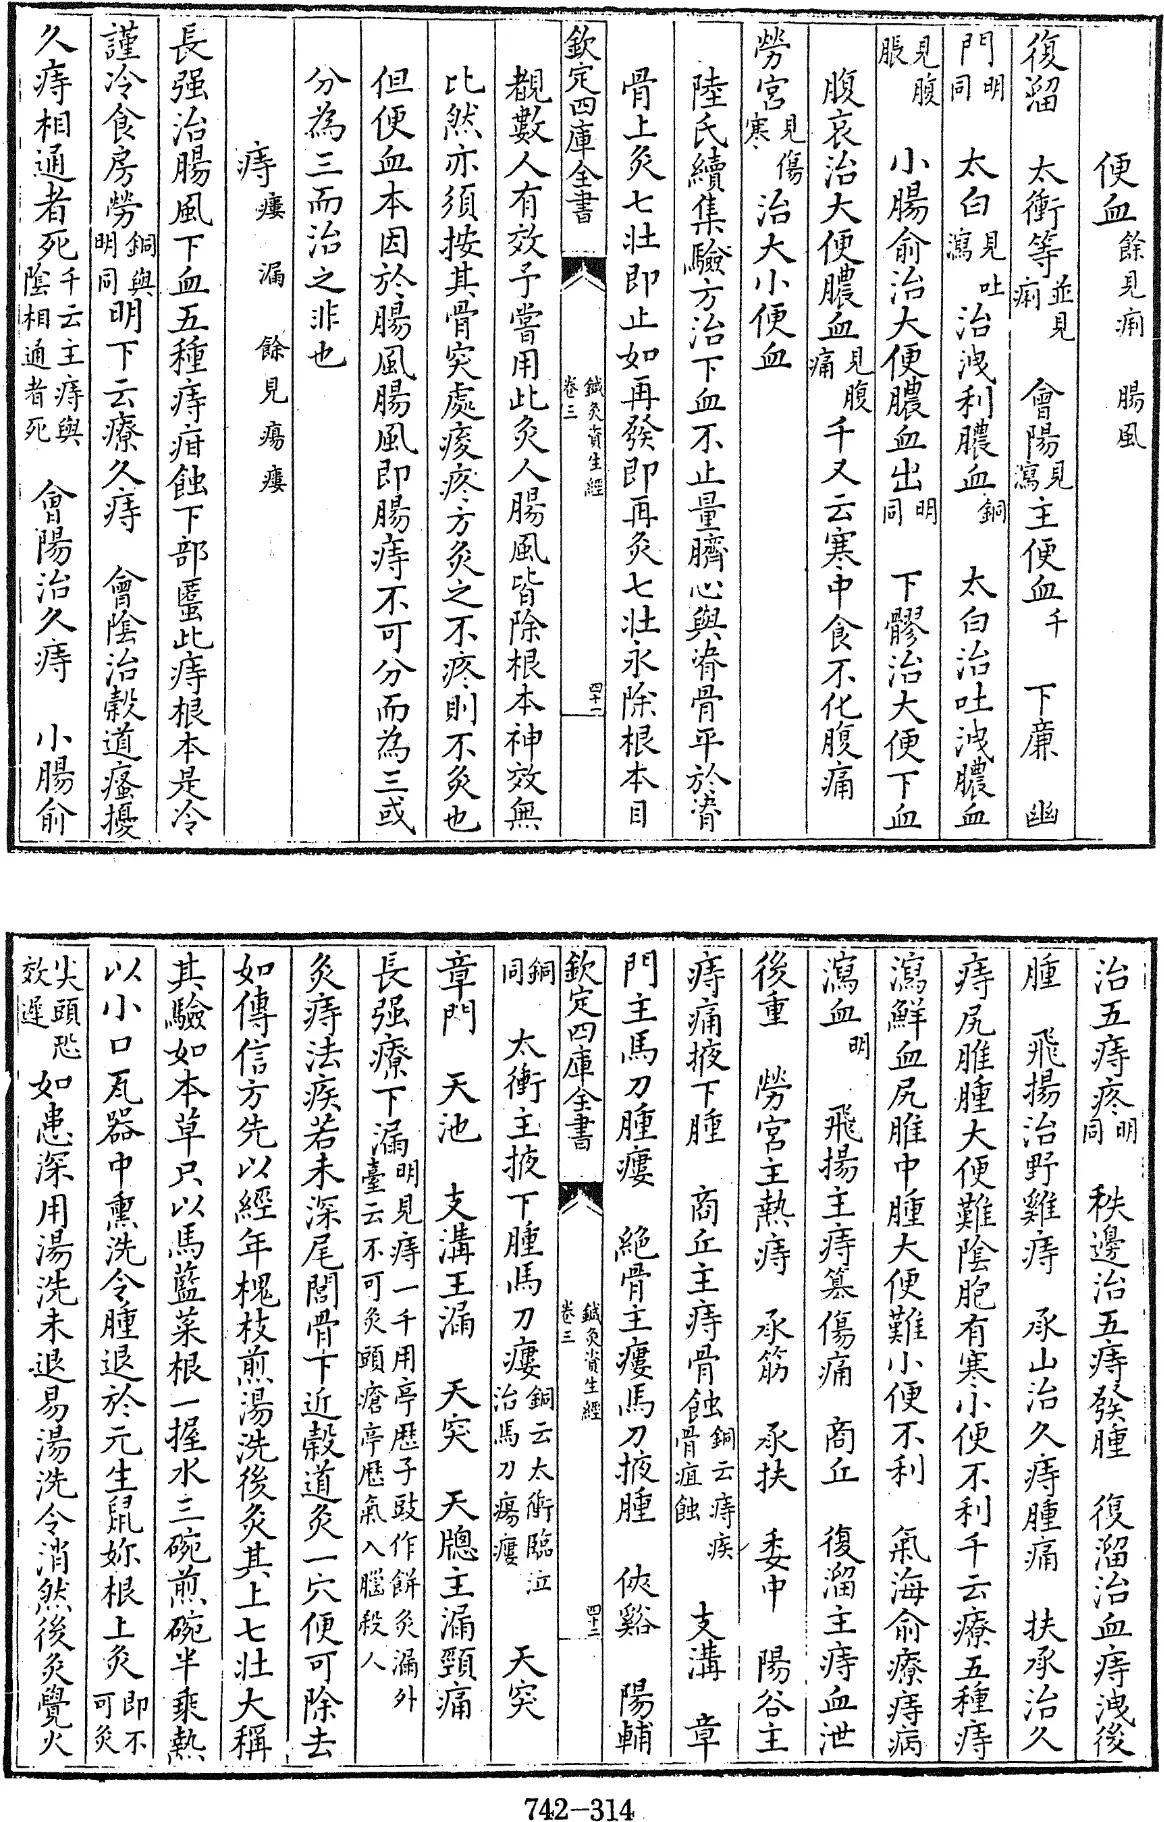 便血餘見痢 腸風
復溜 太衝等並見痢 會陽見瀉主便血千 下廉 幽
門明同 太白見吐瀉治洩利膿血銅 太白治吐洩膿血
見腹脹 小腸俞治大便膿血出明同 下髎治大便下血
腹哀治大便膿血見腹痛千又云寒中食不化腹痛
勞宮見傷寒治大小便血
陸氏續集驗方治下血不止量臍心與脊骨平於脊
骨上灸七壯即止如再發即再灸七壯永除根本目
欽定四庫全書 鍼灸資生經卷三 四十二
覩數人有效予嘗用此灸人腸風皆除根本神效無
比然亦須按其骨突處痠疼方灸之不疼則不灸也
但便血本因於腸風腸風即腸痔不可分而為三或
分為三而治之非也
痔瘻 漏 餘見瘍瘻
長强治腸風下血五種痔疳蝕下部䘌此痔根本是冷
謹冷食房勞銅與明同明下云療久痔 會陰治穀道瘙擾
久痔相通者死千云主痔與陰相通者死 會陽治久痔 小腸俞
治五痔疼明同 秩邊治五痔發腫 復溜治血痔洩後
腫 飛揚治野雞痔 承山治久痔腫痛 扶承治久
痔尻脽腫大便難陰胞有寒小便不利千云療五種痔
瀉鮮血尻脽中腫大便難小便不利 氣海俞療痔病
瀉血明 飛揚主痔篡傷痛 商丘 復溜主痔血泄
後重 勞宮主熱痔 承筋 承扶 委中 陽谷主
痔痛掖下腫 商丘主痔骨蝕銅云痔疾骨疽蝕 支溝 章
門主馬刀腫瘻 絶骨主瘻馬刀掖腫 俠谿 陽輔
欽定四庫全書 鍼灸資生經卷三 四十三
銅同 太衝主掖下腫馬刀瘻銅云太衝臨泣治馬刀瘍瘻 天突
章門 天池 支溝王漏 天突 天牕主漏頸痛
長强療下漏明見痔一千用亭歷子豉作餅灸漏外臺云不可灸頭瘡亭歷氣入腦殺人
灸痔法疾若未深尾閭骨下近穀道灸一穴便可除去
如傳信方先以經年槐枝煎湯洗後灸其上七壯大稱
其驗如本草只以馬藍菜根一握水三碗煎碗半乘熱
以小口瓦器中熏洗令腫退於元生鼠妳根上灸即不可灸
尖頭恐效遲如患深用湯洗未退易湯洗令消然後灸覺火
742-314